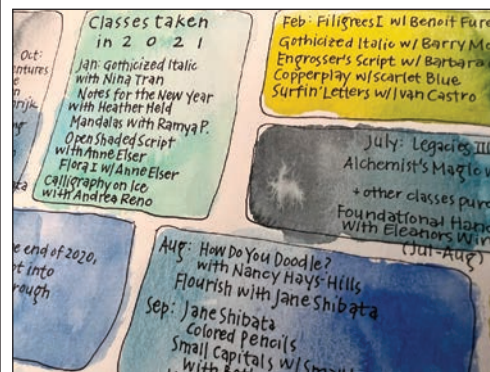 Oct:
ntures
Classes taken
in 2021
Jan: Gothicized Italic
with Nina Tran
Notes for the New Year
with Heather Held
Mandalas with Ramya P.
Open Shaded Script
with Anne Elser
Flora I w/ Anne Elser
Calligraphy on Ice
with Andrea Reno
Feb: Filigrees I w/ Benoit Fure
Gothicized Italic w/ Barry Mo
Engrosser's Script w/ Barbara
Copperplay w/ Scarlet Blue
Surfin' Letters w/ Ivan Castro
July: Legacies III
Alchemist's Magic w
+ other classes purc
Foundational Hand
with Eleanors Win
(Jul-Aug)
e end of 2020,
ot into
rough
Aug: How Do You Doodle?
with Nancy Hays-Hills
Flourish with Jane Shibata
Sep: Jane Shibata
colored pencils
Small Capitals w/
with